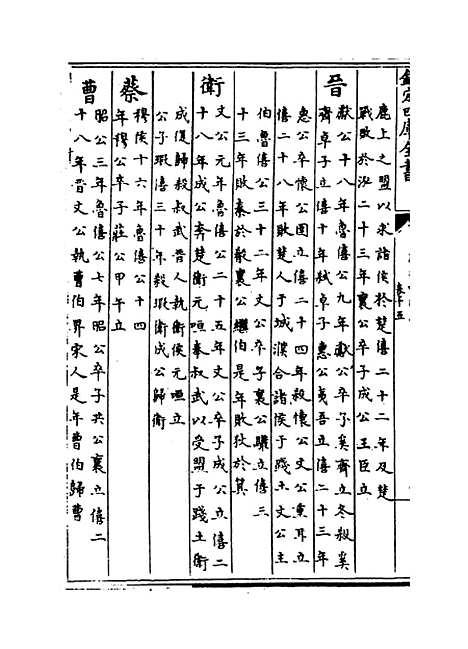 欽定四庫全書
卷十五
鹿上之盟以求諸侯於楚僖二十二年及楚
戰敗於泓二十三年襄公卒子成公王臣立
晉
獻公十八年魯僖公九年獻公卒子奚齊立冬殺奚
齊卓子立僖十年弒卓子惠公夷吾立僖二十三年
惠公卒懷公圉立僖二十四年殺懷公文公重耳立
僖二十八年敗楚人于城濮合諸侯于踐土文公主
伯魯僖公三十二年文公卒子襄公驩立僖三
十三年敗秦於殽襄公繼伯是年敗狄於箕
衛
文公元年魯僖公二十五年文公卒子成公立僖二
十八年成公奔楚衛元咺奉叔武以受盟于踐土衛
成復歸殺叔武晉人執衛侯元咺立
公子瑕僖三十年殺瑕衛成公歸衛
蔡
穆侯十六年魯僖公十四
年穆公卒子莊公甲午立
曹
昭公三年魯僖公七年昭公卒子共公襄立僖二
十八年晉文公執曹伯畀宋人是年曹伯歸曹